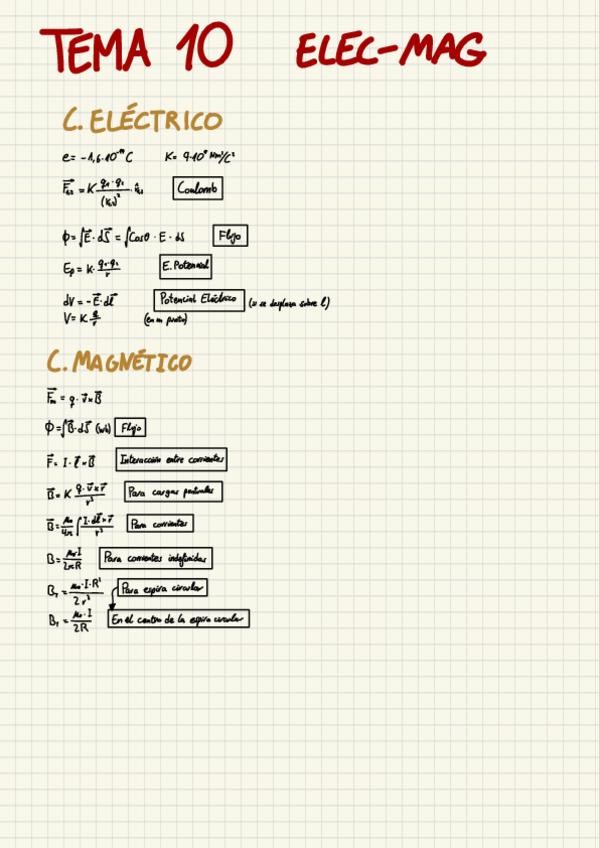 TEMA 10 ELEC-MAG
C. ELÉCTRICO
e = -1,6·10⁻¹⁹ C K = 9·10⁹ Nm²/C²
F⃗₁₂ = K q₁·q₂/(r₁₂)² · û₁₂ Coulomb
ϕ = ∫E⃗·dS⃗ = ∫Cosθ · E · dS Flujo
Eₚ = K · q₁·q₂/r E. Potencial
dV = -E⃗·dℓ⃗ Potencial Eléctrico (= se desplaza sobre l)
V = K q/r (en un punto)
C. MAGNÉTICO
F⃗ₘ = q · v⃗×B⃗
ϕ = ∫B⃗·dS⃗ (wb) Flujo
F⃗ = I · ℓ⃗×B⃗ Interacción entre corrientes
B⃗ = K q·v⃗×r⃗/r³ Para cargas puntuales
B⃗ = μ₀/4π ∫ I·dℓ⃗×r⃗/r³ Para corrientes
B = μ₀I/2πR Para corrientes indefinidas
B_T = μ₀·I·R²/2r³ Para espira circular
B_T = μ₀·I/2R En el centro de la espira circular